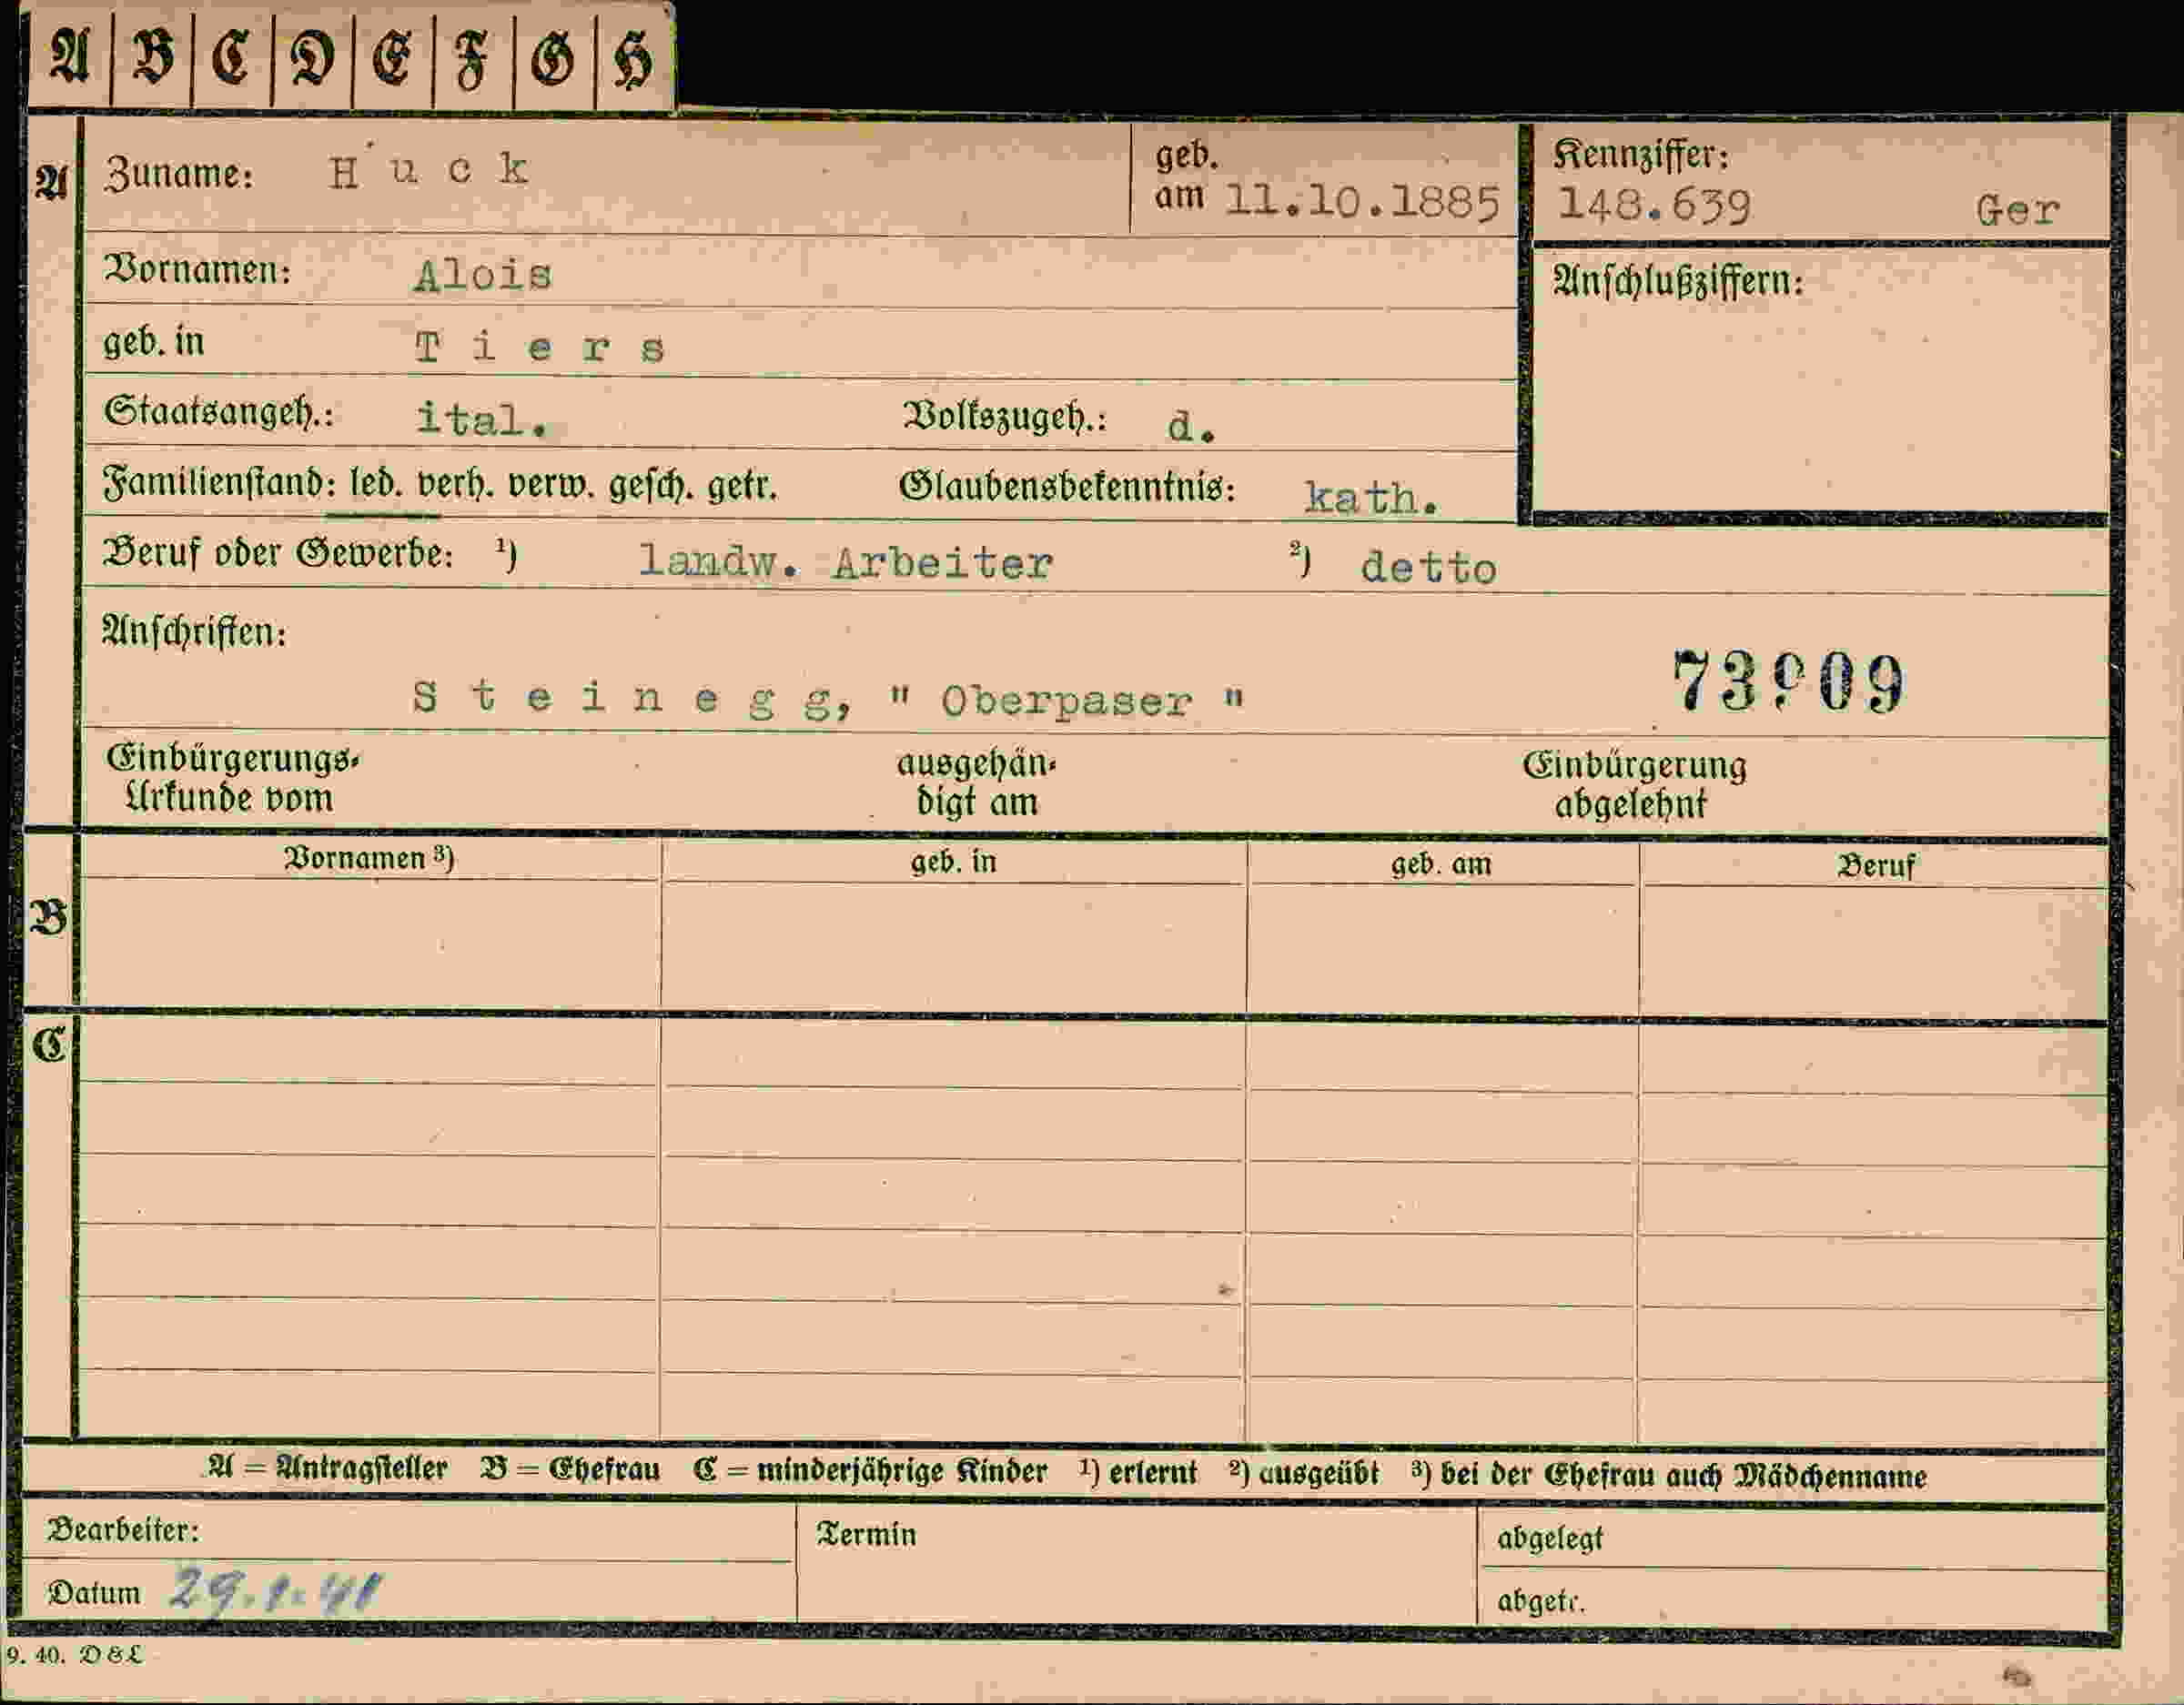 A B C D E F G H
A Zuname: Huck geb. am 11.10.1885 Kennziffer: 148.639 Ger
Vornamen: Alois Anschlußziffern:
geb. in Tiers
Staatsangeh.: ital. Volkszugeh.: d.
Familienstand: led. verh. verw. gesch. getr. Glaubensbekenntnis: kath.
Beruf oder Gewerbe: ¹) landw. Arbeiter ²) detto
Anschriften:
Steinegg, " Oberpaser "
Einbürgerungs-Urkunde vom ausgehän-digt am Einbürgerung abgelehnt
Vornamen ³) geb. in geb. am Beruf
B
C
A = Antragsteller B = Ehefrau C = minderjährige Kinder ¹) erlernt ²) ausgeübt ³) bei der Ehefrau auch Mädchenname
Bearbeiter: Termin abgelegt
Datum 29.1.41 abgetr.
9. 40. D & L